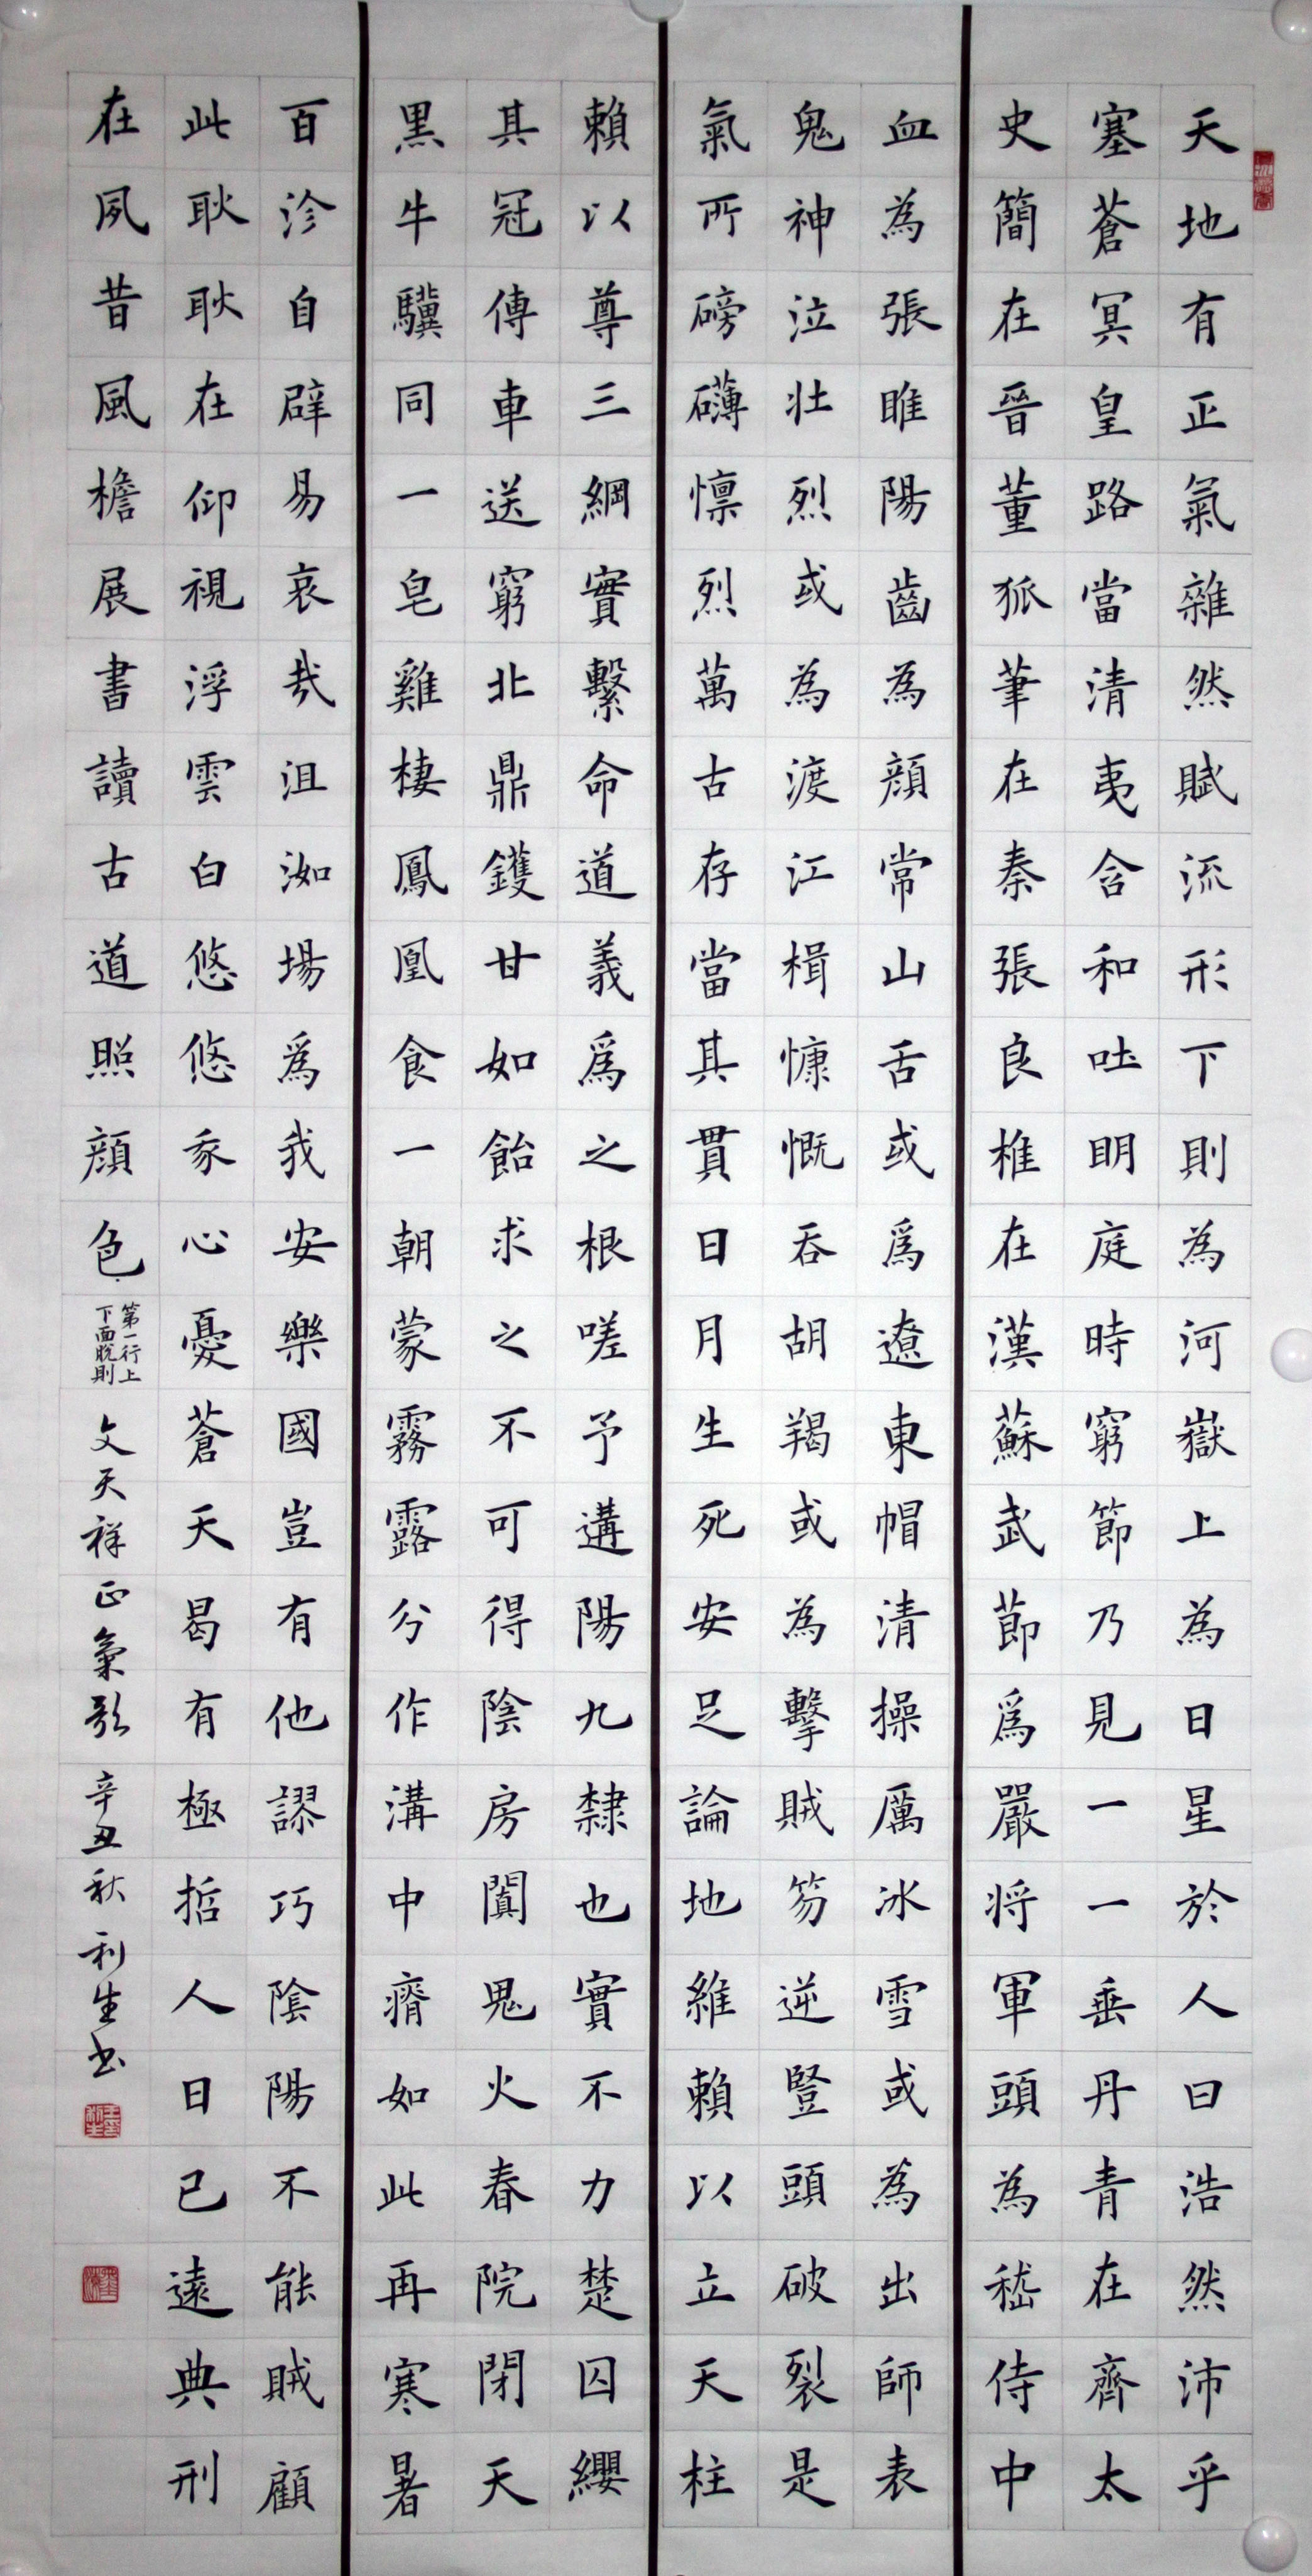 天地有正氣雜然賦流形下則為河嶽上為日星於人曰浩然沛乎
塞蒼冥皇路當清夷含和吐明庭時窮節乃見一一垂丹青在齊太
史簡在晉董狐筆在秦張良椎在漢蘇武節爲嚴将軍頭為嵇侍中
血為張睢陽齒為顔常山舌或爲遼東帽清操厲冰雪或為出師表
鬼神泣壮烈或為渡江楫慷慨吞胡羯或為擊賊笏逆豎頭破裂是
氣所磅礴懍烈萬古存當其貫日月生死安足論地維賴以立天柱
賴以尊三綱實繫命道義爲之根嗟予遘陽九隸也實不力楚囚纓
其冠傳車送窮北鼎鑊甘如飴求之不可得陰房闃鬼火春院閉天
黑牛驥同一皂雞棲鳳凰食一朝蒙霧露分作溝中瘠如此再寒暑
百沴自辟易哀哉沮洳場爲我安樂國豈有他謬巧陰陽不能賊顧
此耿耿在仰視浮雲白悠悠我心憂蒼天曷有極哲人日已遠典刑
在夙昔風檐展書讀古道照顔色
第一行上
下面脱則
文天祥正氣歌 辛丑秋利生书